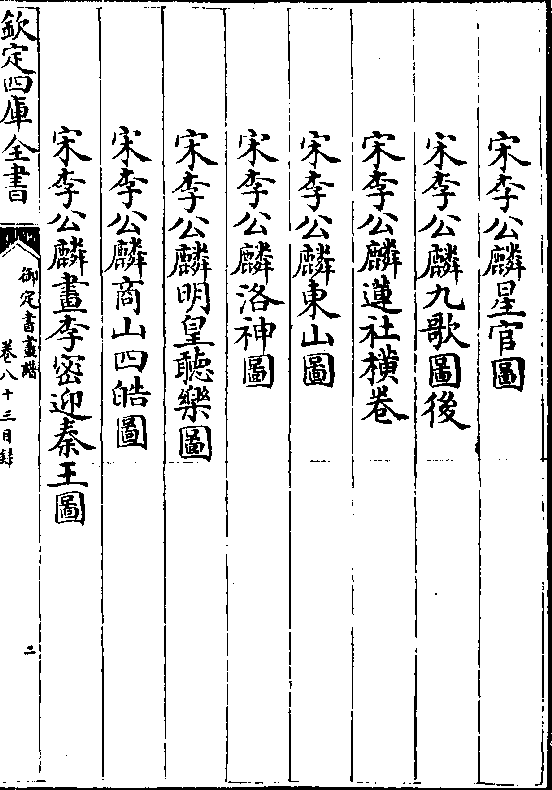 宋李公麟星官圖
宋李公麟九歌圖後
宋李公麟蓮社橫卷
宋李公麟東山圖
宋李公麟洛神圖
宋李公麟明皇聽樂圖
宋李公麟商山四皓圖
宋李公麟畫李密迎秦王圖
欽定四庫全書
御定書畫譜
卷八十三目録
二